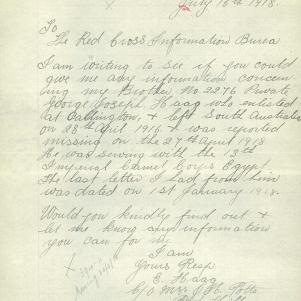 July 16th 1918.
To
The Red Cross Information Burea
I am writing to see if you could
give me any information concern
ing my Brother No 2276 Private
George Joseph Haag who enlisted
at Oaklington, & left South Australia
on 28th April 1916 & was reported
missing on the 27th April 1918
He was serving with the 13
Imperial Camel Corps Egypt
The last letter I had from him
was dated on 1st January 1918.
Would you kindly find out &
let me know any information
you can for me
I am
Yours Resp
E. Haag
C/o Mrs